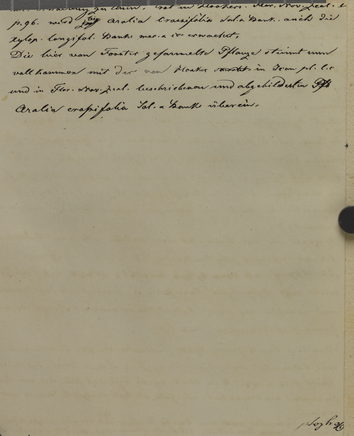 in Hookers. Flor. Nov. Zeal. 1
p. 96. wird Aralia Crassifolia Sol. & Bank. nicht die
xylop. longifol. Banks erwaehnt.
Die hier von Forster gesammelte Pflanze stimmt nun
vollkommen mit der von Hooker in Icon. pl. l. c.
und in Flor. Nov. Zeal. beschriebenen und abgebildeten
Aralia crassifolia Sol. & Banks überein.